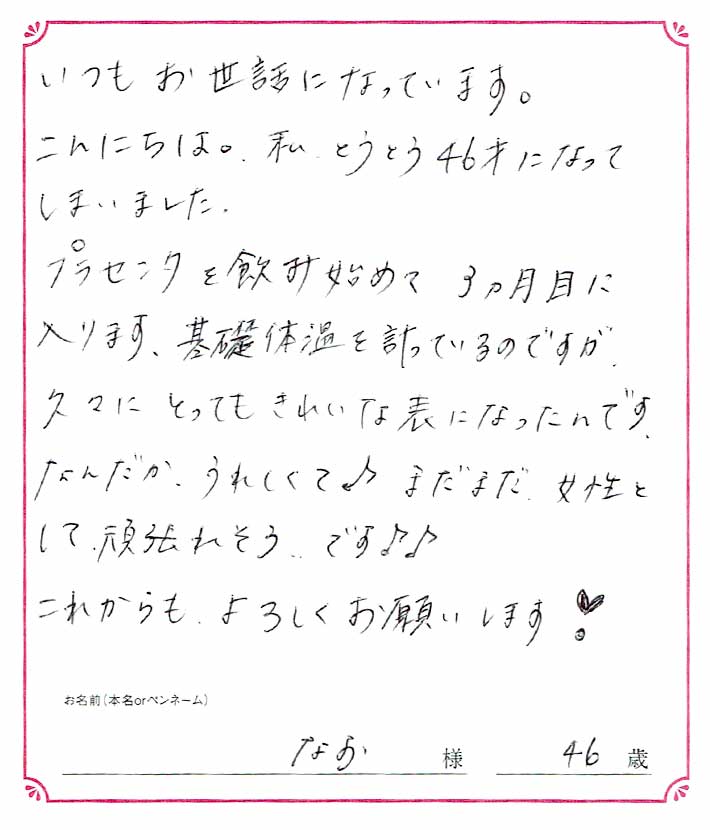 いつもお世話になっています。
こんにちは。私、とうとう46才になって
しまいました.
プラセンタを飲み始めて 3ヵ月目に
入ります、基礎体温を計っているのですが、
久々に とってもきれいな表になったんです、
なんだか、うれしくて♪ まだまだ、女性と
して、頑張れそう、、です♪♪
これからも、よろしくお願いします❣
お名前(本名orペンネーム)
なお 様 46 歳